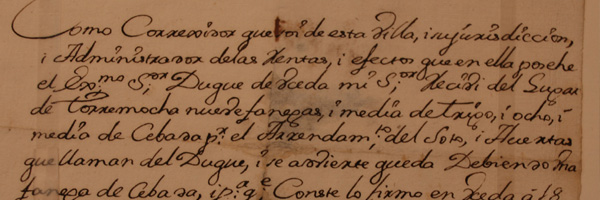 Como Correxidor que soi de esta Villa, i su jurisdiccion,
i Administrador de las Rentas, i efectos que en ella poshehe
el Exmo. Sor. Duque de Uceda mi Sor. Recivi del Lugar
de Torremocha nueve fanegas, i media de trigo, i ocho, i
media de Cebada pr. el Arrendamto. del Soto, i Huertas
que llaman del Duque, i se advierte queda Debiendo una
fanega de Cebada, i pa. qe. Conste lo firmo en Uceda á 18